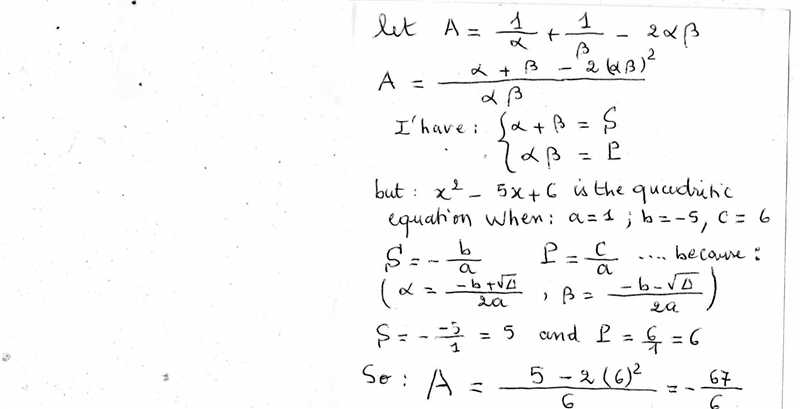 let A = 1/α + 1/β - 2αβ
A = (α + β - 2(αβ)²)/(αβ)
I'have : { α + β = S
{ αβ = P
but : x² - 5x + 6 is the quadritic
equation when : a = 1 ; b = -5, c = 6
S = - b/a P = c/a .... because :
( α = (-b+√Δ)/2a , β = (-b-√Δ)/2a )
S = - -5/1 = 5 and P = 6/1 = 6
So : A = (5 - 2(6)²)/6 = - 67/6